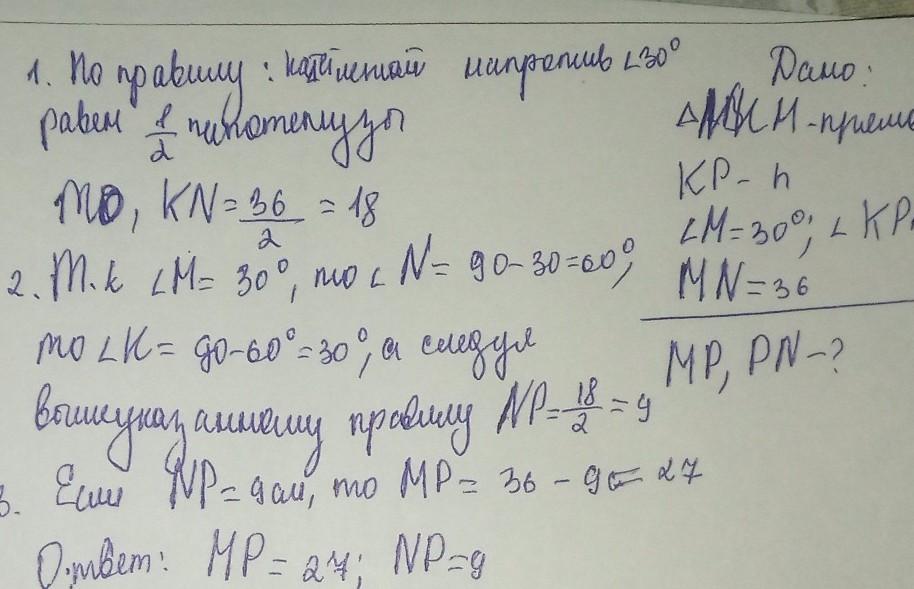 1. По правилу: катет лежащий напротив ∠30°
равен 1/2 гипотенузы
то, KN = 36/2 = 18
2. Т.к ∠M = 30°, то ∠N = 90-30=60°,
то ∠K = 90-60°=30°, а следуя
вышеуказанному правилу NP = 18/2 = 9
3. Если NP = 9см, то MP = 36 - 9 = 27
Ответ: MP = 27; NP=9
Дано:
KP - h
∠M=30°; ∠KP
MN=36
MP, PN-?